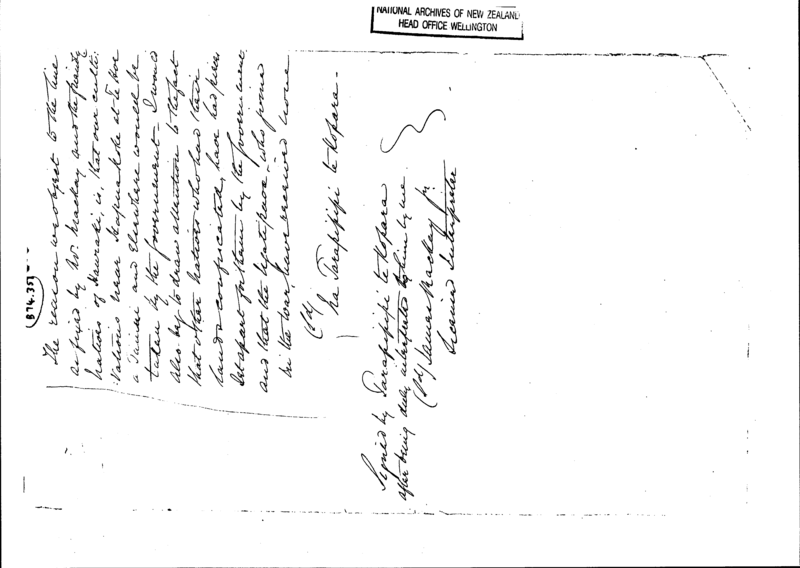 NATIONAL ARCHIVES OF NEW ZEALAND
HEAD OFFICE WELLINGTON
(B74.357)
The reason we object to the line
as fixed by Mr. Mackay and the friendly
natives of Hauraki, is, that our culti-
vations near at Te Hoe
a Tainui and elsewhere would be
taken by the Government - I would
also beg to draw attention to the fact
that other natives who had their
lands confiscated, have had pieces
set apart for them by the Government
and that the who joined
in the war, have received none
(Sd)
na Tarapipipi te Kopara -
Signed by Tarapipipi te Kopara
after being duly interpreted to him by me
(Sd) James Mackay Jr.
Licensed Interpreter